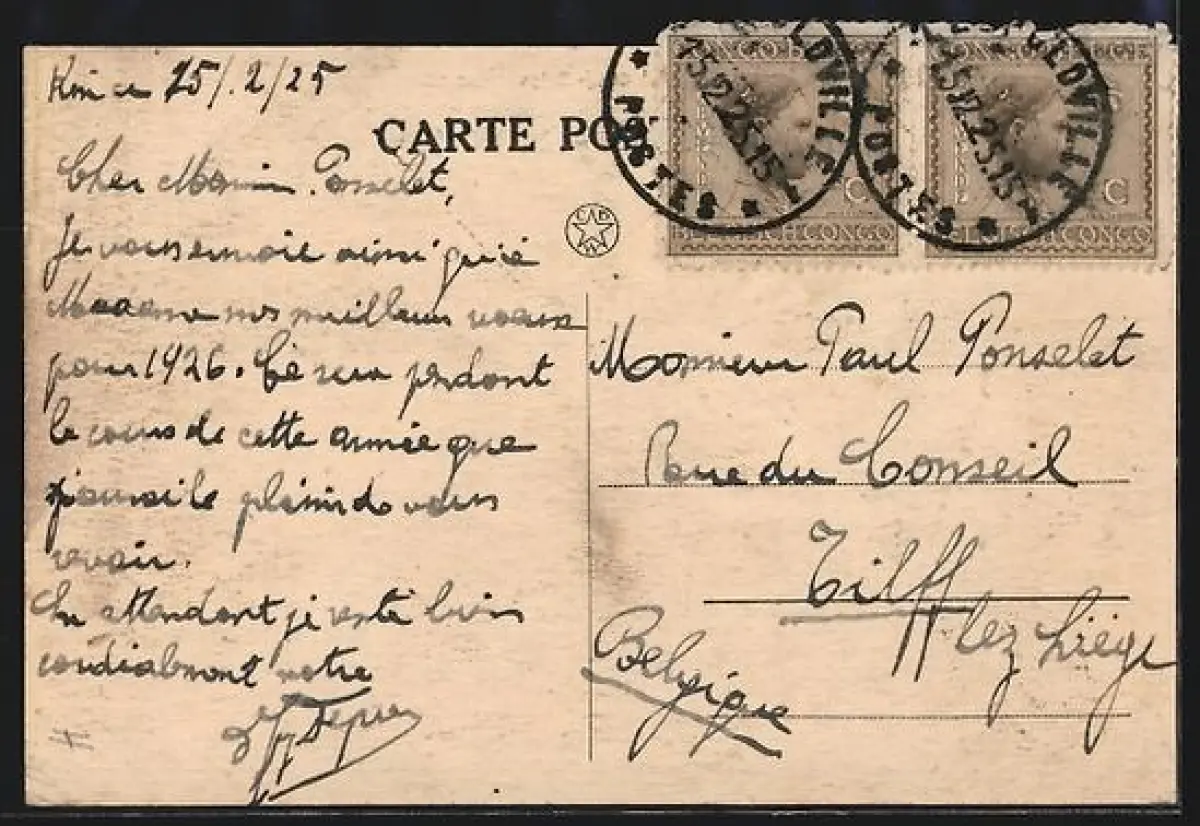 Kin le 15/.2/25
CARTE POS
Cher Monsieur Ponselet,
Je vous envoie ainsi qu'à
Madame nos meilleurs voeux
pour 1926. Ce sera pendant
le cours de cette année que
j'aurai le plaisir de vous
revoir.
En attendant je reste bien
cordialement votre
CAB
CONGO BELGE
C
BELGISCH CONGO
CONGO BELGE
C
BELGISCH CONGO
LEOPOLDVILLE
15.12.25.15
POSTES
LEOPOLDVILLE
15.12.25.15
POSTES
Monsieur Paul Ponselet
Rue du Conseil
Tilff
lez Liége
Belgique